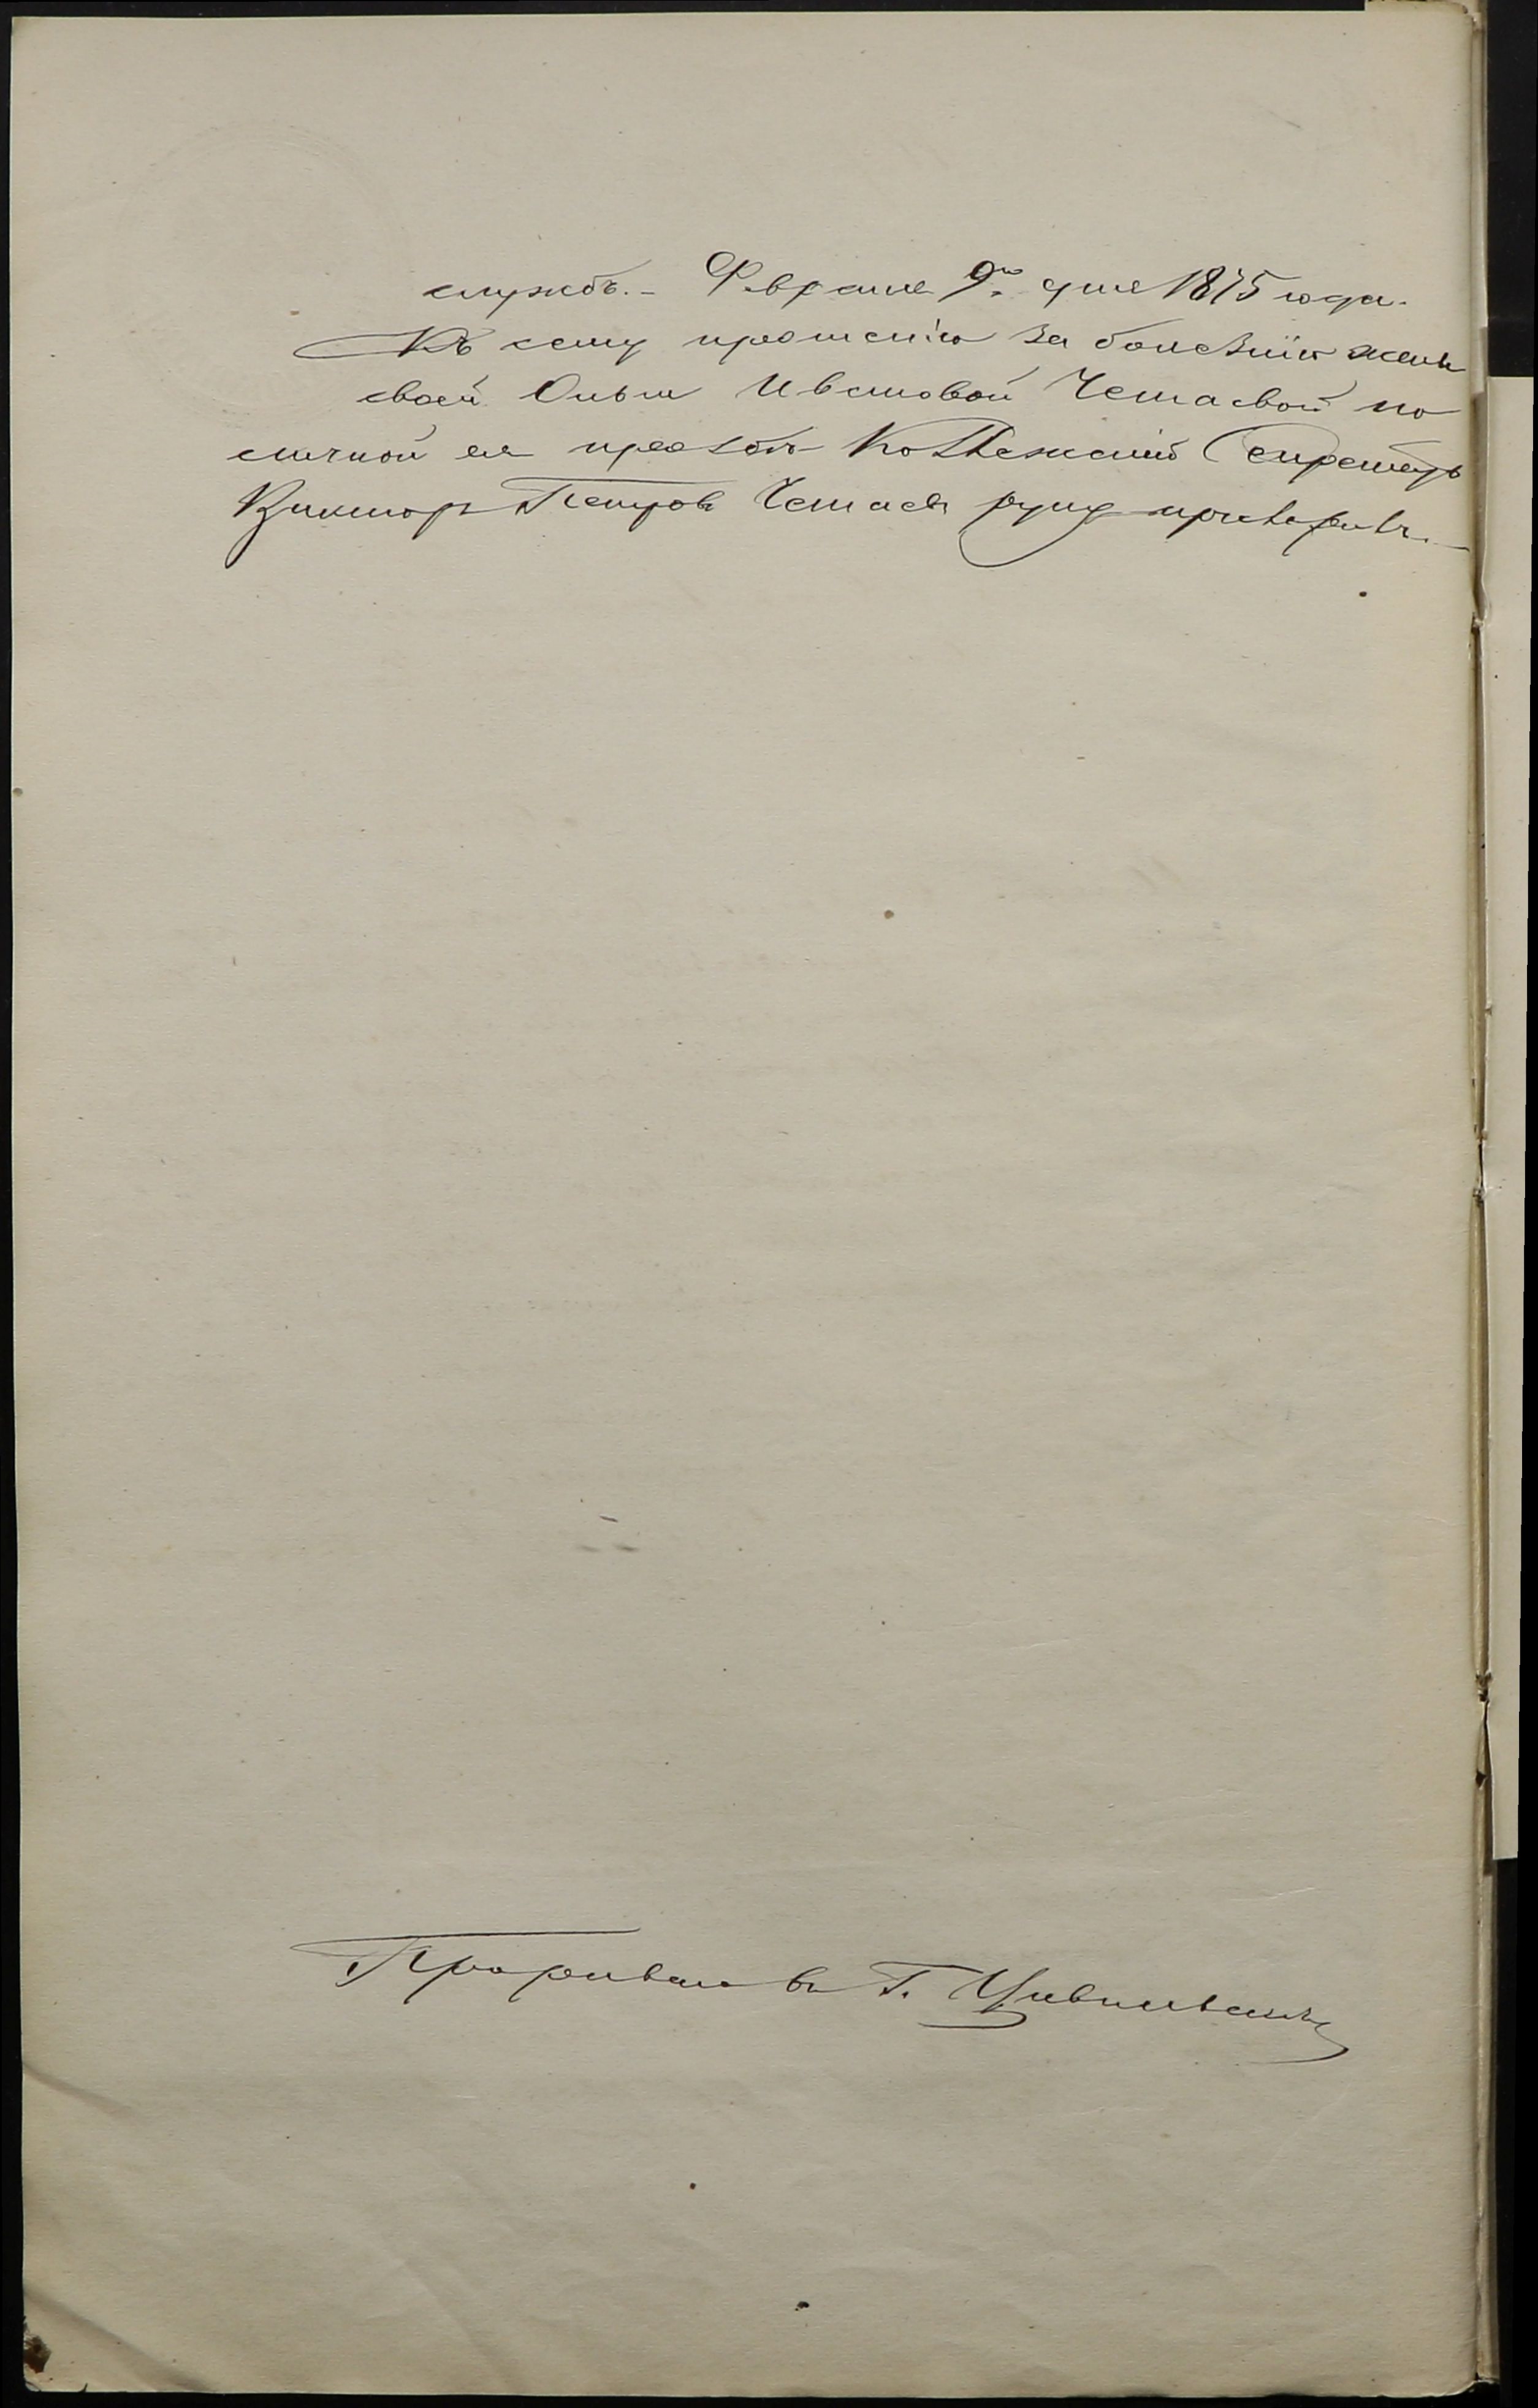 службѣ. - Февраля 9го дня 1875 года.
Къ сему прошенію за болезнію жены
своей Ольги Ивановой Четаевой по
личной ея прозбѣ Коллежскій Секретарь
Викторъ Петровъ Четаевъ руку приложилъ. -
въ Г.